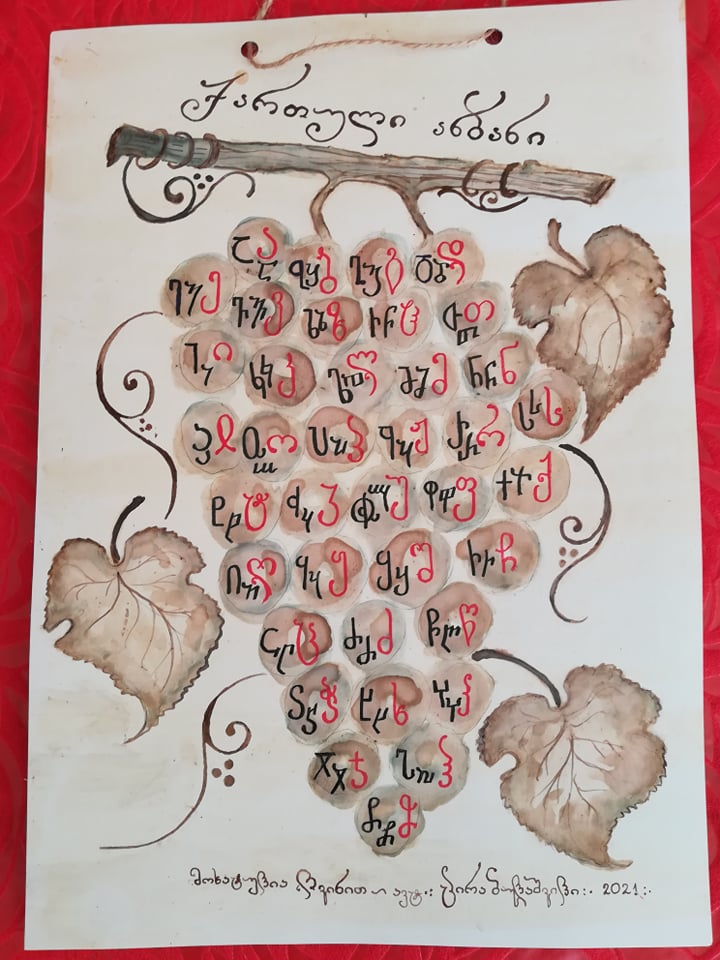 ქართული ანბანი
Ⴀⴀა Ⴁⴁბ Ⴂⴂგ Ⴃⴃდ
Ⴄⴄე Ⴅⴅვ Ⴆⴆზ Ⴡⴡჱ Ⴇⴇთ
Ⴈⴈი Ⴉⴉკ Ⴊⴊლ Ⴋⴋმ Ⴌⴌნ
Ⴢჲ Ⴍⴍო Ⴎⴎპ Ⴏⴏჟ Ⴐⴐრ Ⴑⴑს
Ⴒⴒტ Ⴣⴣჳ Ⴓⴓუ Ⴔⴔფ Ⴕⴕქ
Ⴖⴖღ Ⴗⴗყ Ⴘⴘშ Ⴙⴙჩ
Ⴚⴚც Ⴛⴛძ Ⴜⴜწ
Ⴝⴝჭ Ⴞⴞხ Ⴤⴤჴ
Ⴟⴟჯ Ⴠⴠჰ
Ⴥⴥჵ
მოხატულია ღვინით ავტ.: 2021